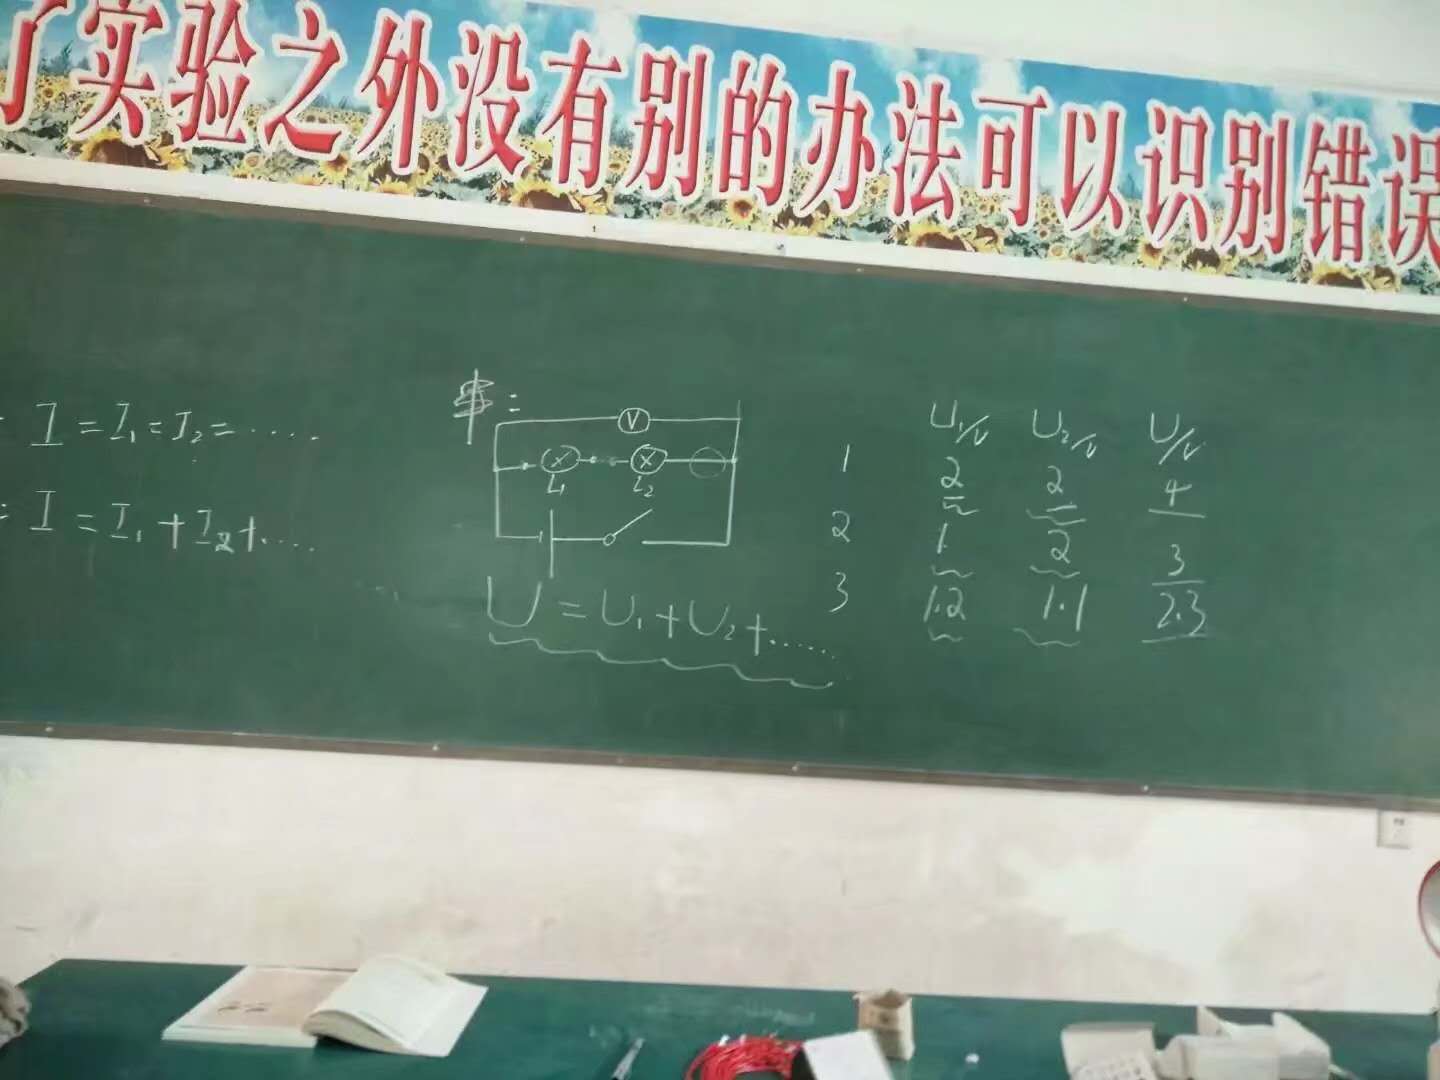 了实验之外没有别的办法可以识别错误
I = I₁ = I₂ = ‥‥
= I = I₁ + I₂ + ‥‥
串:
V
L₁ L₂
U = U₁ + U₂ + ‥‥‥
U₁/V U₂/V U/V
1 2 2 4
2 1 2 3
3 1.2 1.1 2.3